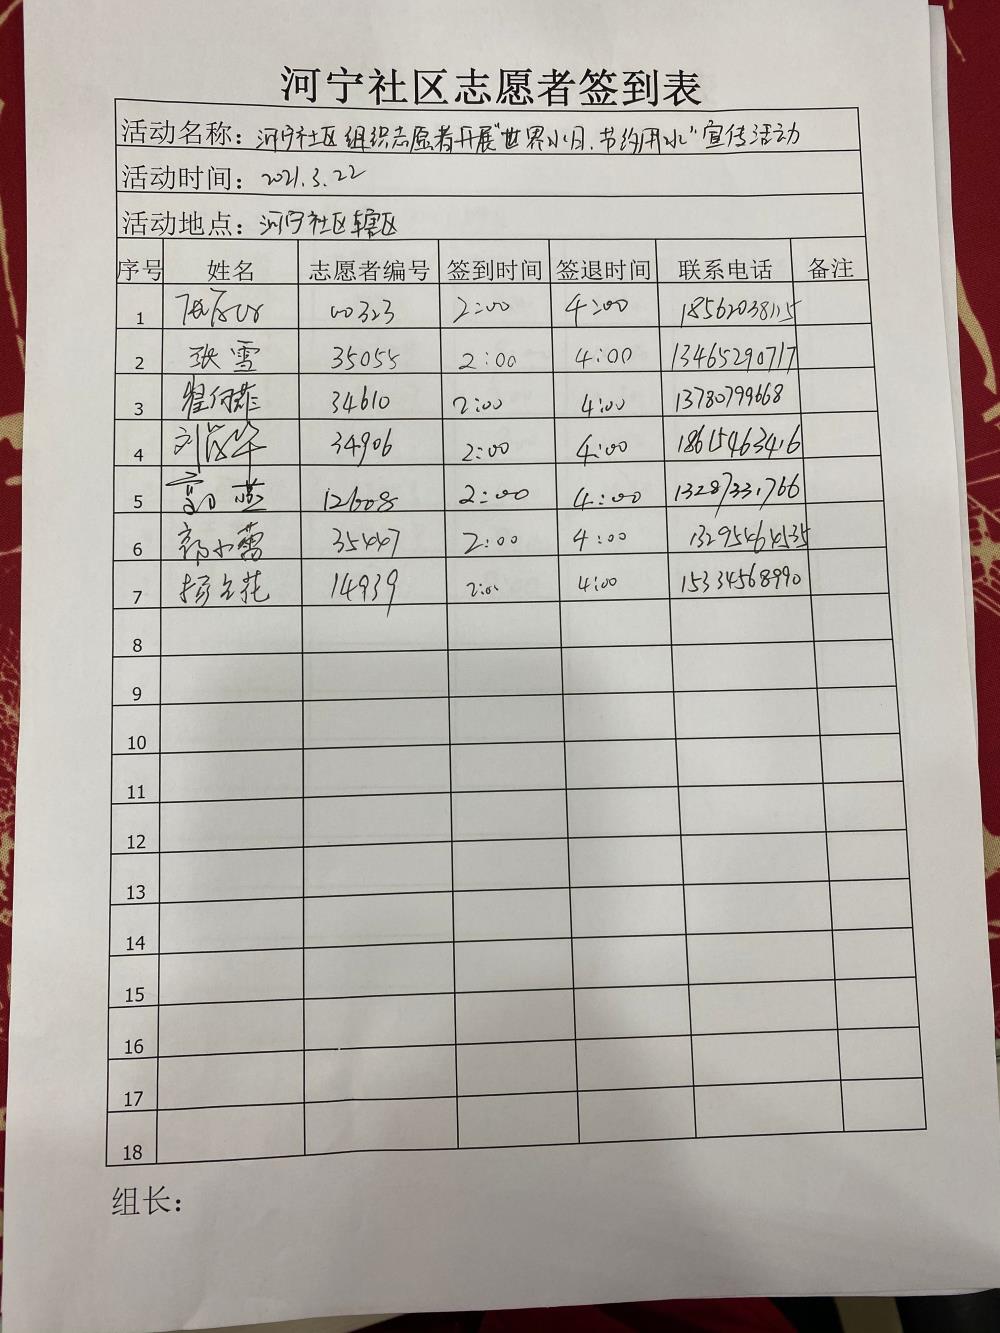 河宁社区志愿者签到表
活动名称：河宁社区组织志愿者开展“世界水日、节约用水”宣传活动
活动时间：2021.3.22
活动地点：河宁社区辖区
序号 姓名 志愿者编号 签到时间 签退时间 联系电话 备注
1 00323 2:00 4:00
2 张雪 35055 2:00 4:00 13465290717
3 34610 2:00 4:00 13780799668
4 34906 2:00 4:00
5 燕 12608 2:00 4:00
6 郭小蕾 35447 2:00 4:00
7 杨立花 14939 2:00 4:00 15334568990
8
9
10
11
12
13
14
15
16
17
18
组长：